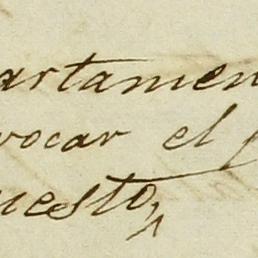 artamen
vocar el
uesto,